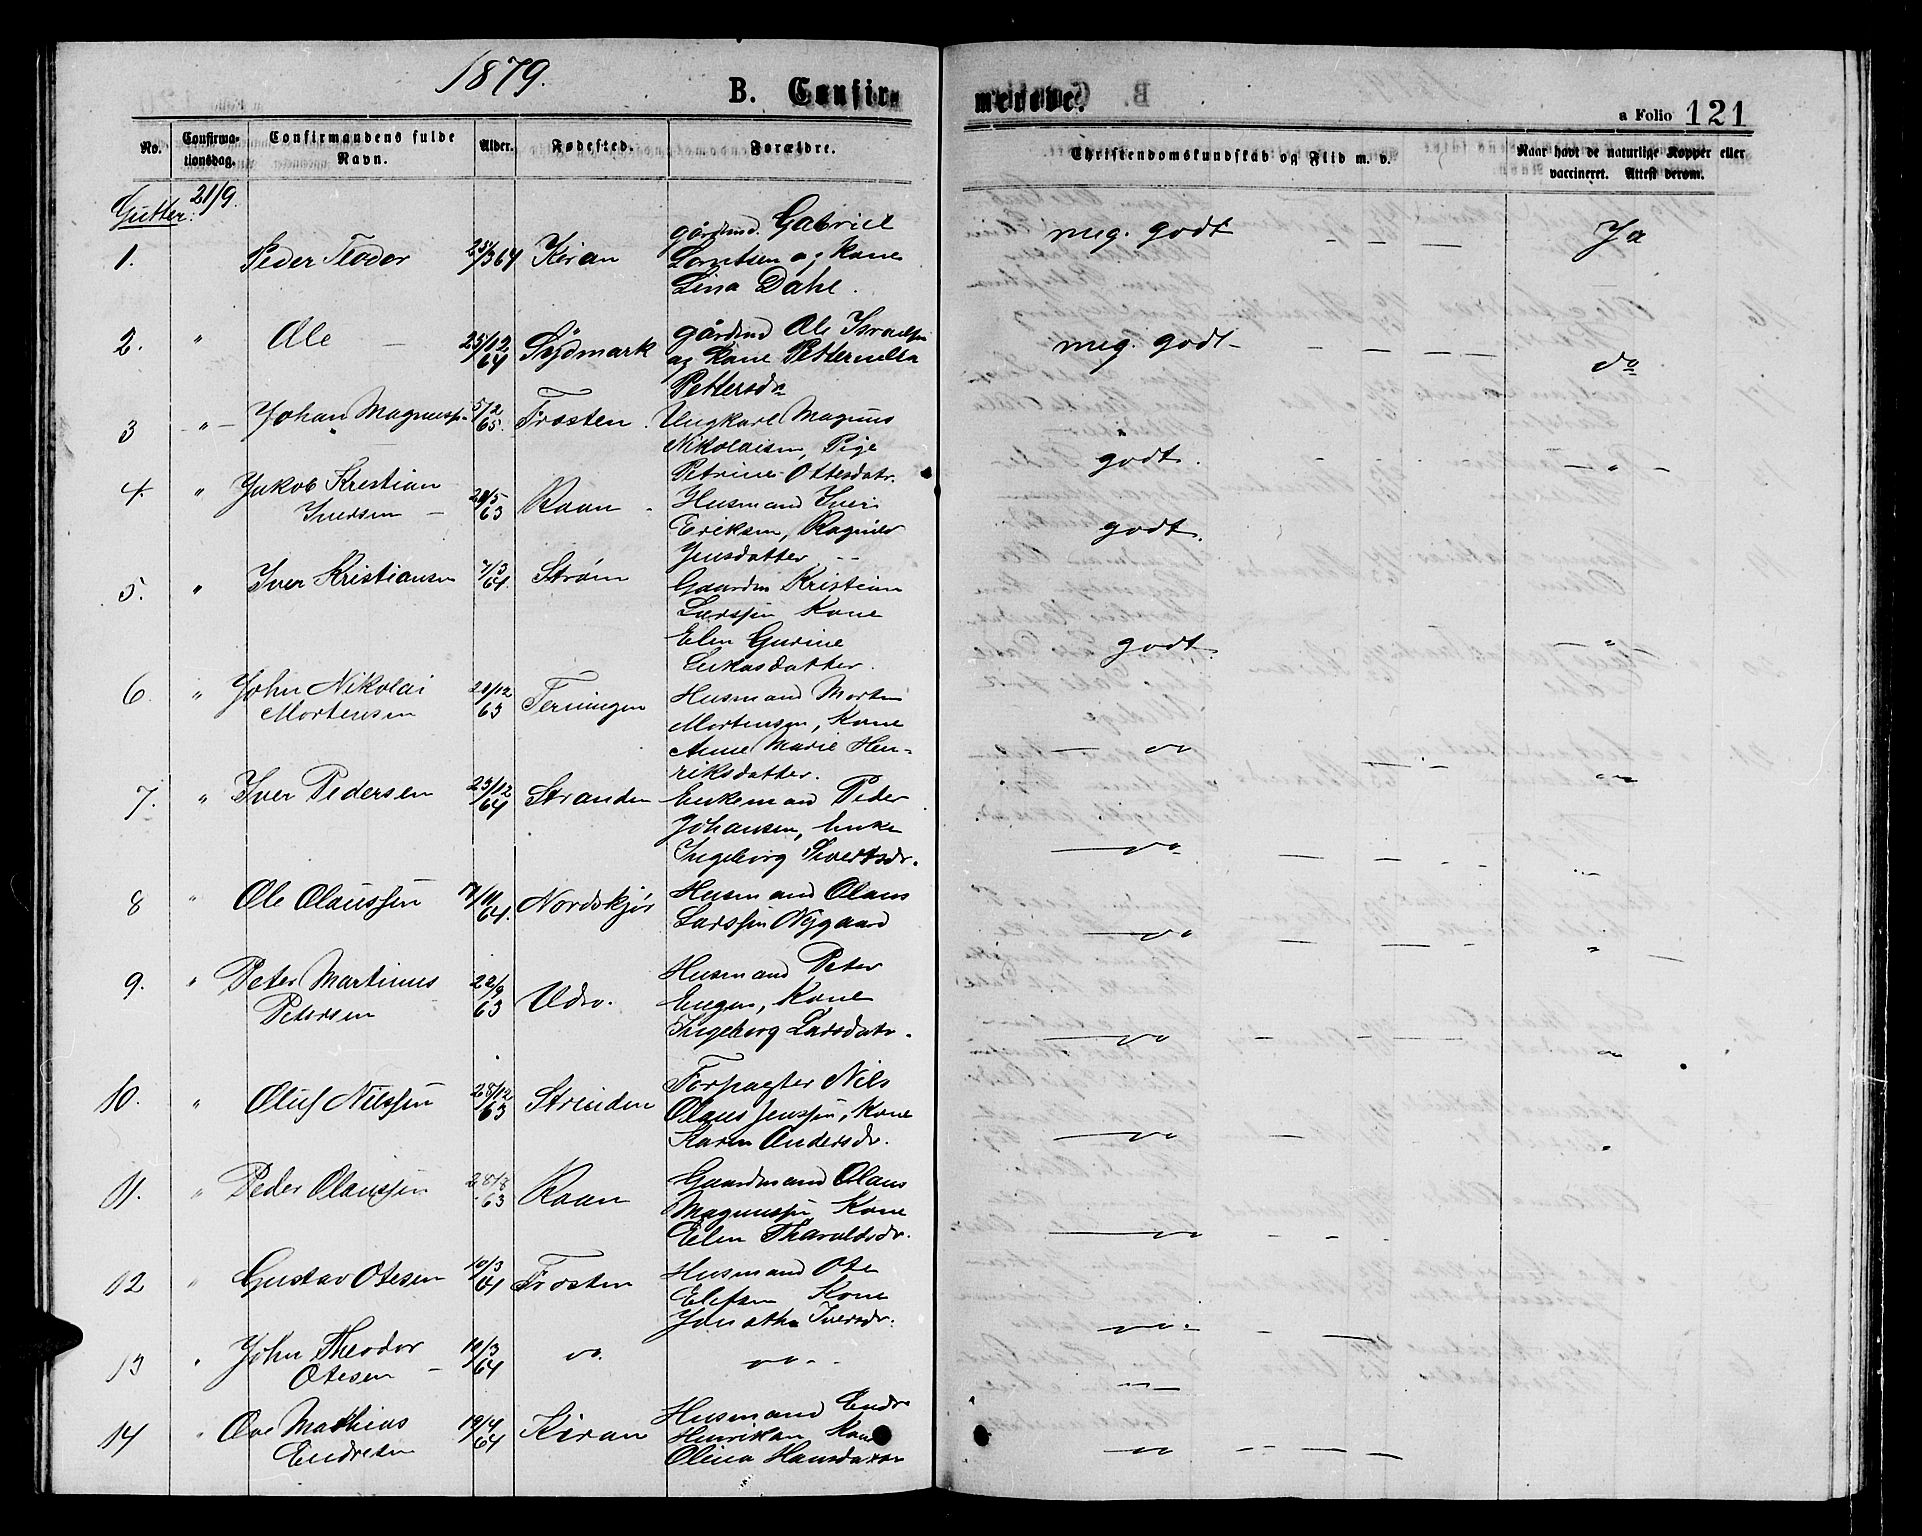 1879.
B. Confir-
merede.
a Folio 121
No.
Confirma-
tionsdag.
Confirmandens fulde
Navn.
Alder.
Fødested.
Forældre.
Christendomskundskab og Flid m. v.
Naar havt de naturlige Kopper eller
vaccineret. Attest derom.
Gutter: 21/9.
1. Peder Teodor 25/3 64 Kiran gårdmd. Gabriel
Lorntsen og kone
Lina Dahl.
meg. godt — — — Ja
2. " Ole — 25/12 64 Sydmark gårdmd Ole Israelsen
og Kone Petternella
Pettersdr
meg. godt — — — — do
3 " Johan Magnussen 5/2 65. Frosten. Ungkarl Magnus
Nikolaisen, Pige
Petrine Ottesdatr.
godt. — " —
4. " Jakob Kristian
Iversen — 63 Raan Husmand Iver
Eriksen, Ragnild
Jensdatter —
godt.
5. " Iver Kristiansen 7/3 64. Strøm Gaardm Kristian
Larssen Kone
Elen Gurine
Lukasdatter.
godt. — " 
6. " John Nikolai
Mortensen 21/12 63 Terningen Husmand Morten
Mortensen, Kone
Anne Marie Hen-
riksdatter.
— do
7. " Iver Pedersen 23/12 64 Stranden Enkemand Peder
Johansen,
Ingeborg Sivertsdr.
— do — — — —
8 " Ole Olaussen 17/11 64. Nordskjør Husmand Olaus
Larssen Nygaard
— do — — — "
9. " Peter Martinus
Petersen 22/9 63 Udv. Husmand Peter
Engen, Kone
Ingeborg Larsdatr.
— do — — — —
10. " Oluf Nilssen 28/12 63 Strinden Forpagter Nils
Olaus Jenssen, Kone
Karen Andersdr.
— do —
11. " Peder Olaussen 28/8 63 Raan Gaardmand Olaus
Magnussen Kone
Elen Tharaldsdr.
— do — — —
12 " Gustav Otesen 10/3 64 Frosten Husmand Ote
Elefsen Kone
Jonetha Iversdr.
do. — —
13 " John Theodor
Otesen — 10/3 64 do. do. -
— " —
14 " Ove Mathias
Endresen 19/4 64 Kiran Husmand Endre
Henriksen Kone
Olina Hansdatter
do — — — —